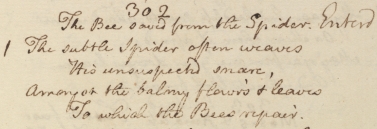 302
The Bee saved from the Spider. Enterd
1 The subtle Spider often weaves
His unsuspected snare,
Amongst the balmy flow'rs & leaves
To which the Bees repair.